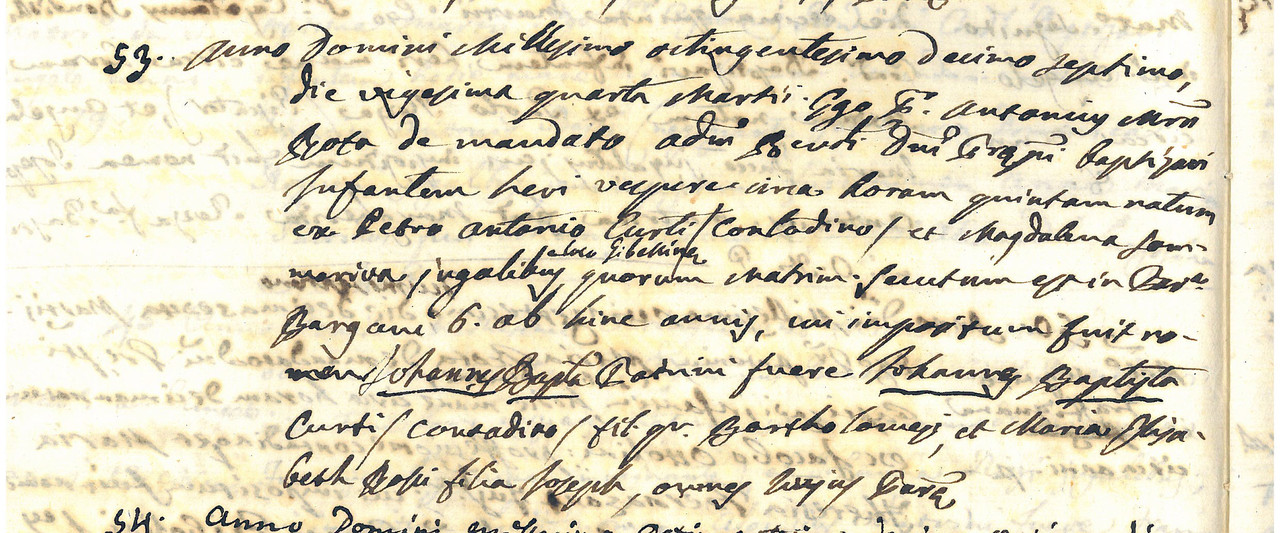 53. Anno Domini Millesimo octingentesimo decimo septimo,
die vigesima quarta Martii. Ego P. Antonius Mrã
Rota de mandato adm Rendi Dni baptizavi
Infantem heri vespere circa horam quintam natum
ex Petro Antonio Curti / Contadino / et Magdalena Som-
e loco Gibellina
mariva jugalibus quorum Matrim. secutum est in
Bargani 6. ab hinc annis, cui impositum fuit no-
men Johannes Bapta Patrini fuere Johannes Baptista
Curti / Contadino / fil. qr. Bartholomej, et Maria Elisa-
beth Rossi filia Joseph, omnes hujus Paræ
54. Anno Domini